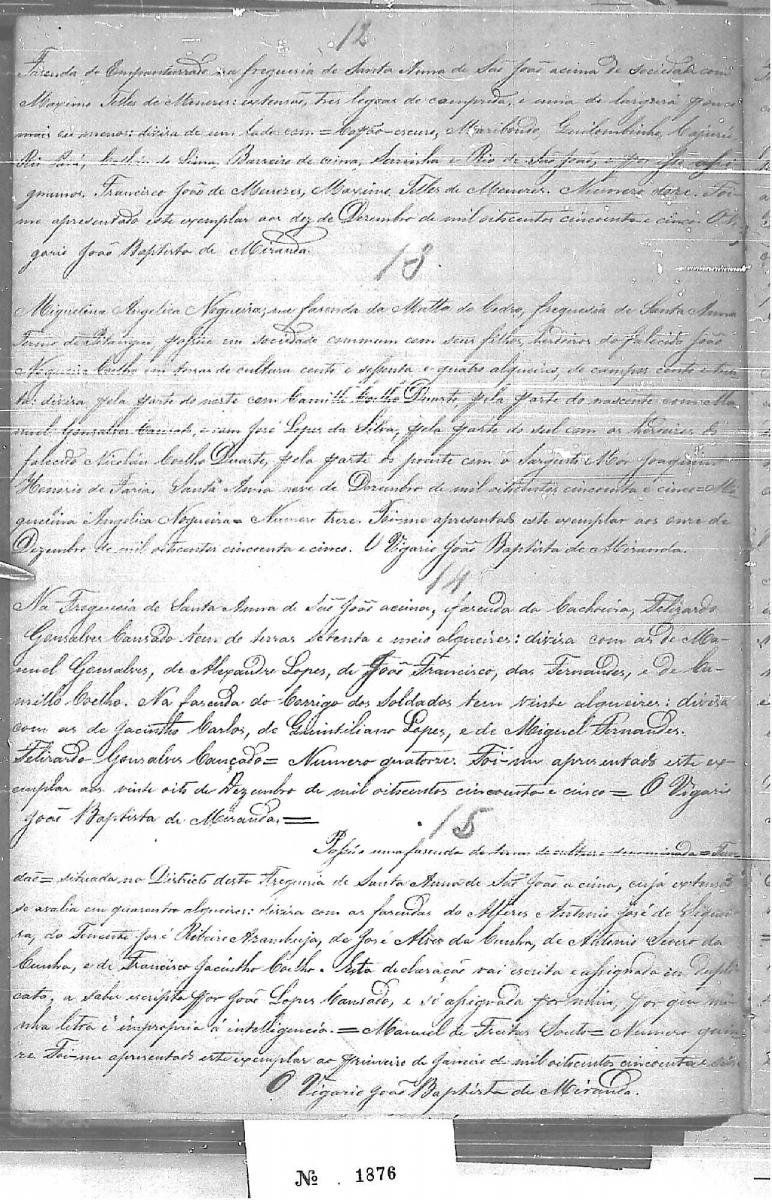 12
Fazenda do Empanturrado na freguesia de Santa Anna de São João acima de sociedade com
Maximo Telles de Menezes: extensão, tres legoas de comprido, e uma de largura pouco
mais ou menos: divisa de um lado com = Capão-escuro, Maribondo, Quilombinho, Cajurú
Rio Pará, de Sima, Barreiro de cima, Serrinha e Rio de São João, e por
gnamos. Francisco João de Menezes, Maximo Telles de Menezes. Numero doze. Foi-
me apresentado este exemplar aos dez de Dezembro de mil oitocentos cincoenta e cinco. O Vi-
gario João Baptista de Miranda.
13
Miguelina Angelica Nogueira, na fazenda da Matta do Cedro, freguesia de Santa Anna
Termo de Pitangui, possue em sociedade commum com seus filhos, herdeiros do falecido João
Nogueira Coelho em terras de cultura cento e sessenta e quatro alqueires, de campos cento e trin-
ta: divisa pela parte do norte com Camillo Coelho Duarte pela parte do nascente com Ma-
nuel Gonsalves Cansado, e com José Lopes da Silva, pela parte do sul com os herdeiros do
falecido Nicoláu Coelho Duarte, pela parte do poente com o Sargento Mor Joaquim
Honorio de Faria. Santa Anna nove de Dezembro de mil oitocentos cincoenta e cinco = Mi-
guelina Angelica Nogueira = Numero treze. Foi-me apresentado este exemplar aos onze de
Dezembro de mil oitocentos cincoenta e cinco. O Vigario João Baptista de Miranda.
14
Na Freguesia de Santa Anna de São João acima, e fazenda da Cachoeira, Felizardo
Gonsalves Cansado tem de terras setenta e meio alqueires: divisa com as de Ma-
nuel Gonsalves, de Alexandre Lopes, de João Francisco, das Fernandes, e de Ca-
millo Coelho. Na fazenda do Corrigo dos Soldados tem vinte alqueires: divisa
com as de Jacintho Carlos, de Quintiliano Lopes, e de Miguel Fernandes.
Felizardo Gonsalves Cançado = Numero quatorze. Foi-me apresentado este ex-
emplar aos vinte oito de Dezembro de mil oitocentos cincoenta e cinco = O Vigario
João Baptista de Miranda. =
15
Possúo uma fazenda de terras de cultura denominada =
dão = situada no Districto desta Freguesia de Santa Anna de São João a cima, cuja extensão
se avalia em quarenta alqueires: divisa com as fazendas do Alferes Antonio José de Siquei-
ra, do Tenente José Ribeiro Azambuja, de José Alves da Cunha, de Antonio Severo da
Cunha, e de Francisco Jacintho Coelho. Esta declaração vai escrita e assignada em dupli-
cata, a saber escripta por João Lopes Cansado, e só assignada por mim, por que mi-
nha letra é impropria á intelligencia. = Manuel de Freitas Souto = Numero quin-
ze. Foi-me apresentado este exemplar ao primeiro de Janeiro de mil oitocentos cincoenta e seis.
O Vigario João Baptista de Miranda.
№ 1876